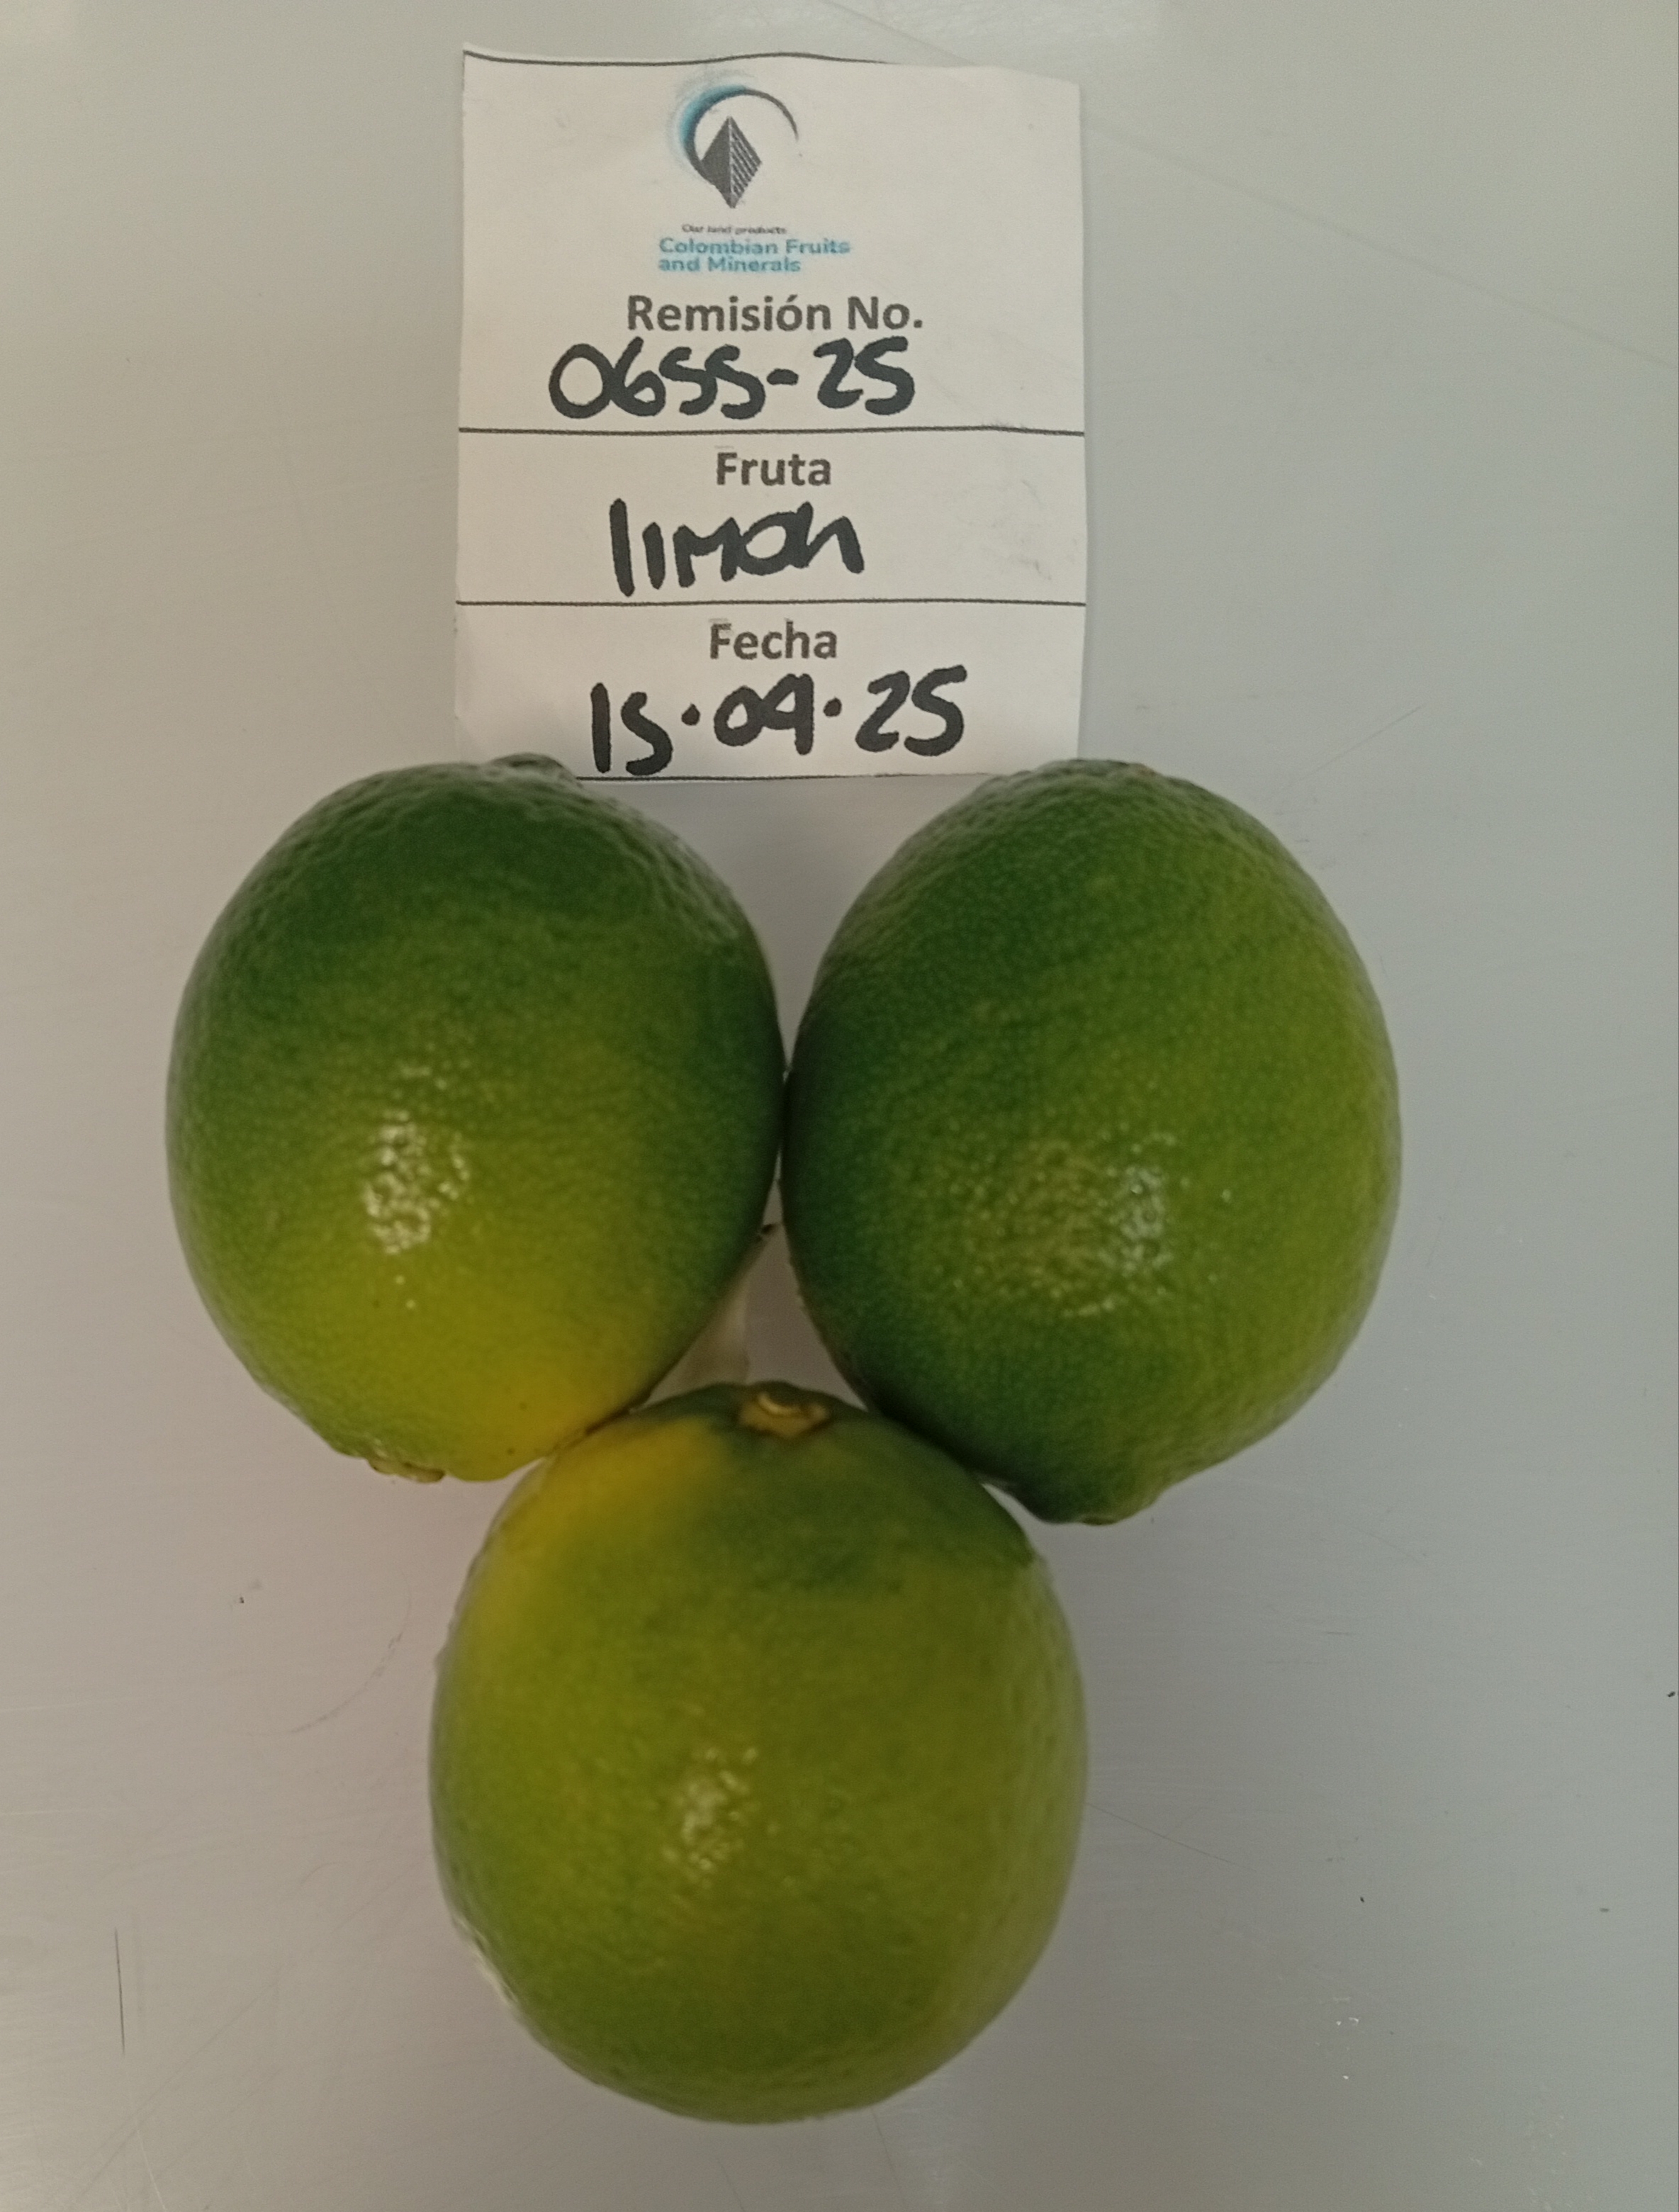 Our land products
Colombian Fruits
and Minerals
Remisión No.
0655-25
Fruta
limon
Fecha
15.09.25